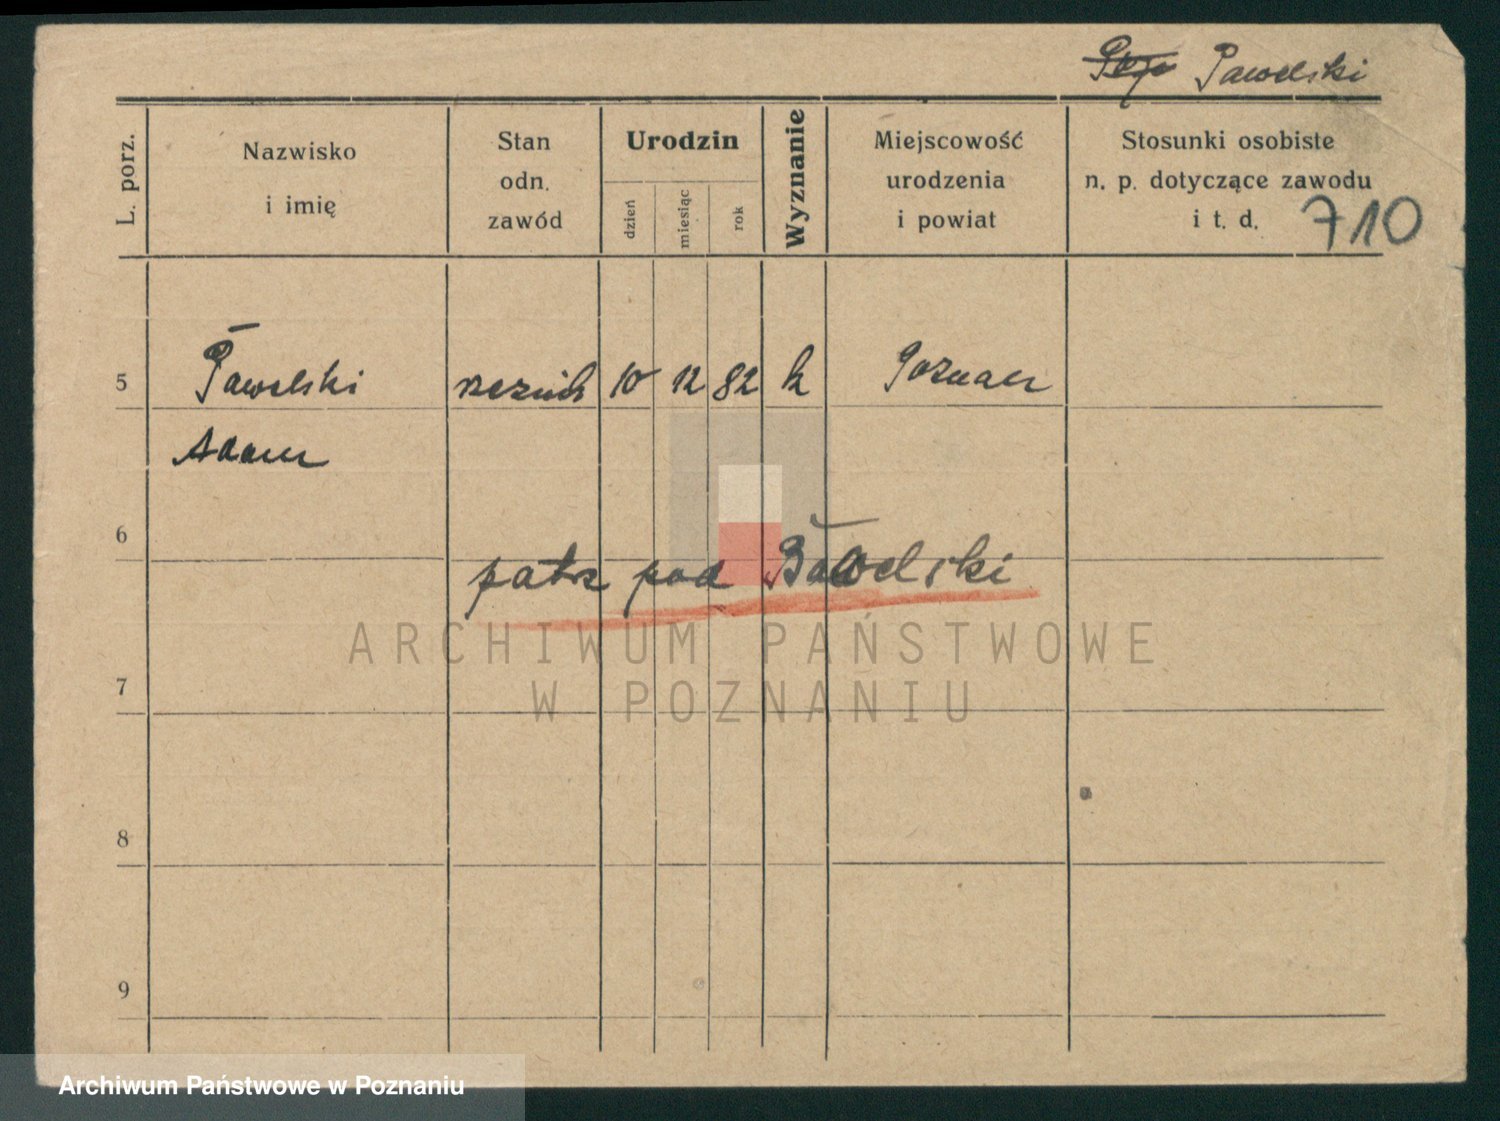 Pawelski
L. porz.
Nazwisko
i imię
Stan
odn.
zawód
Urodzin
dzień
miesiąc
rok
Wyznanie
Miejscowość
urodzenia
i powiat
Stosunki osobiste
n. p. dotyczące zawodu
i t. d.
710
5 Pawelski rzeźnik 10 12 82 k Poznań
Adam
6
patrz pod Bawelski
ARCHIWUM PAŃSTWOWE
W POZNANIU
7
8
9
Archiwum Państwowe w Poznaniu